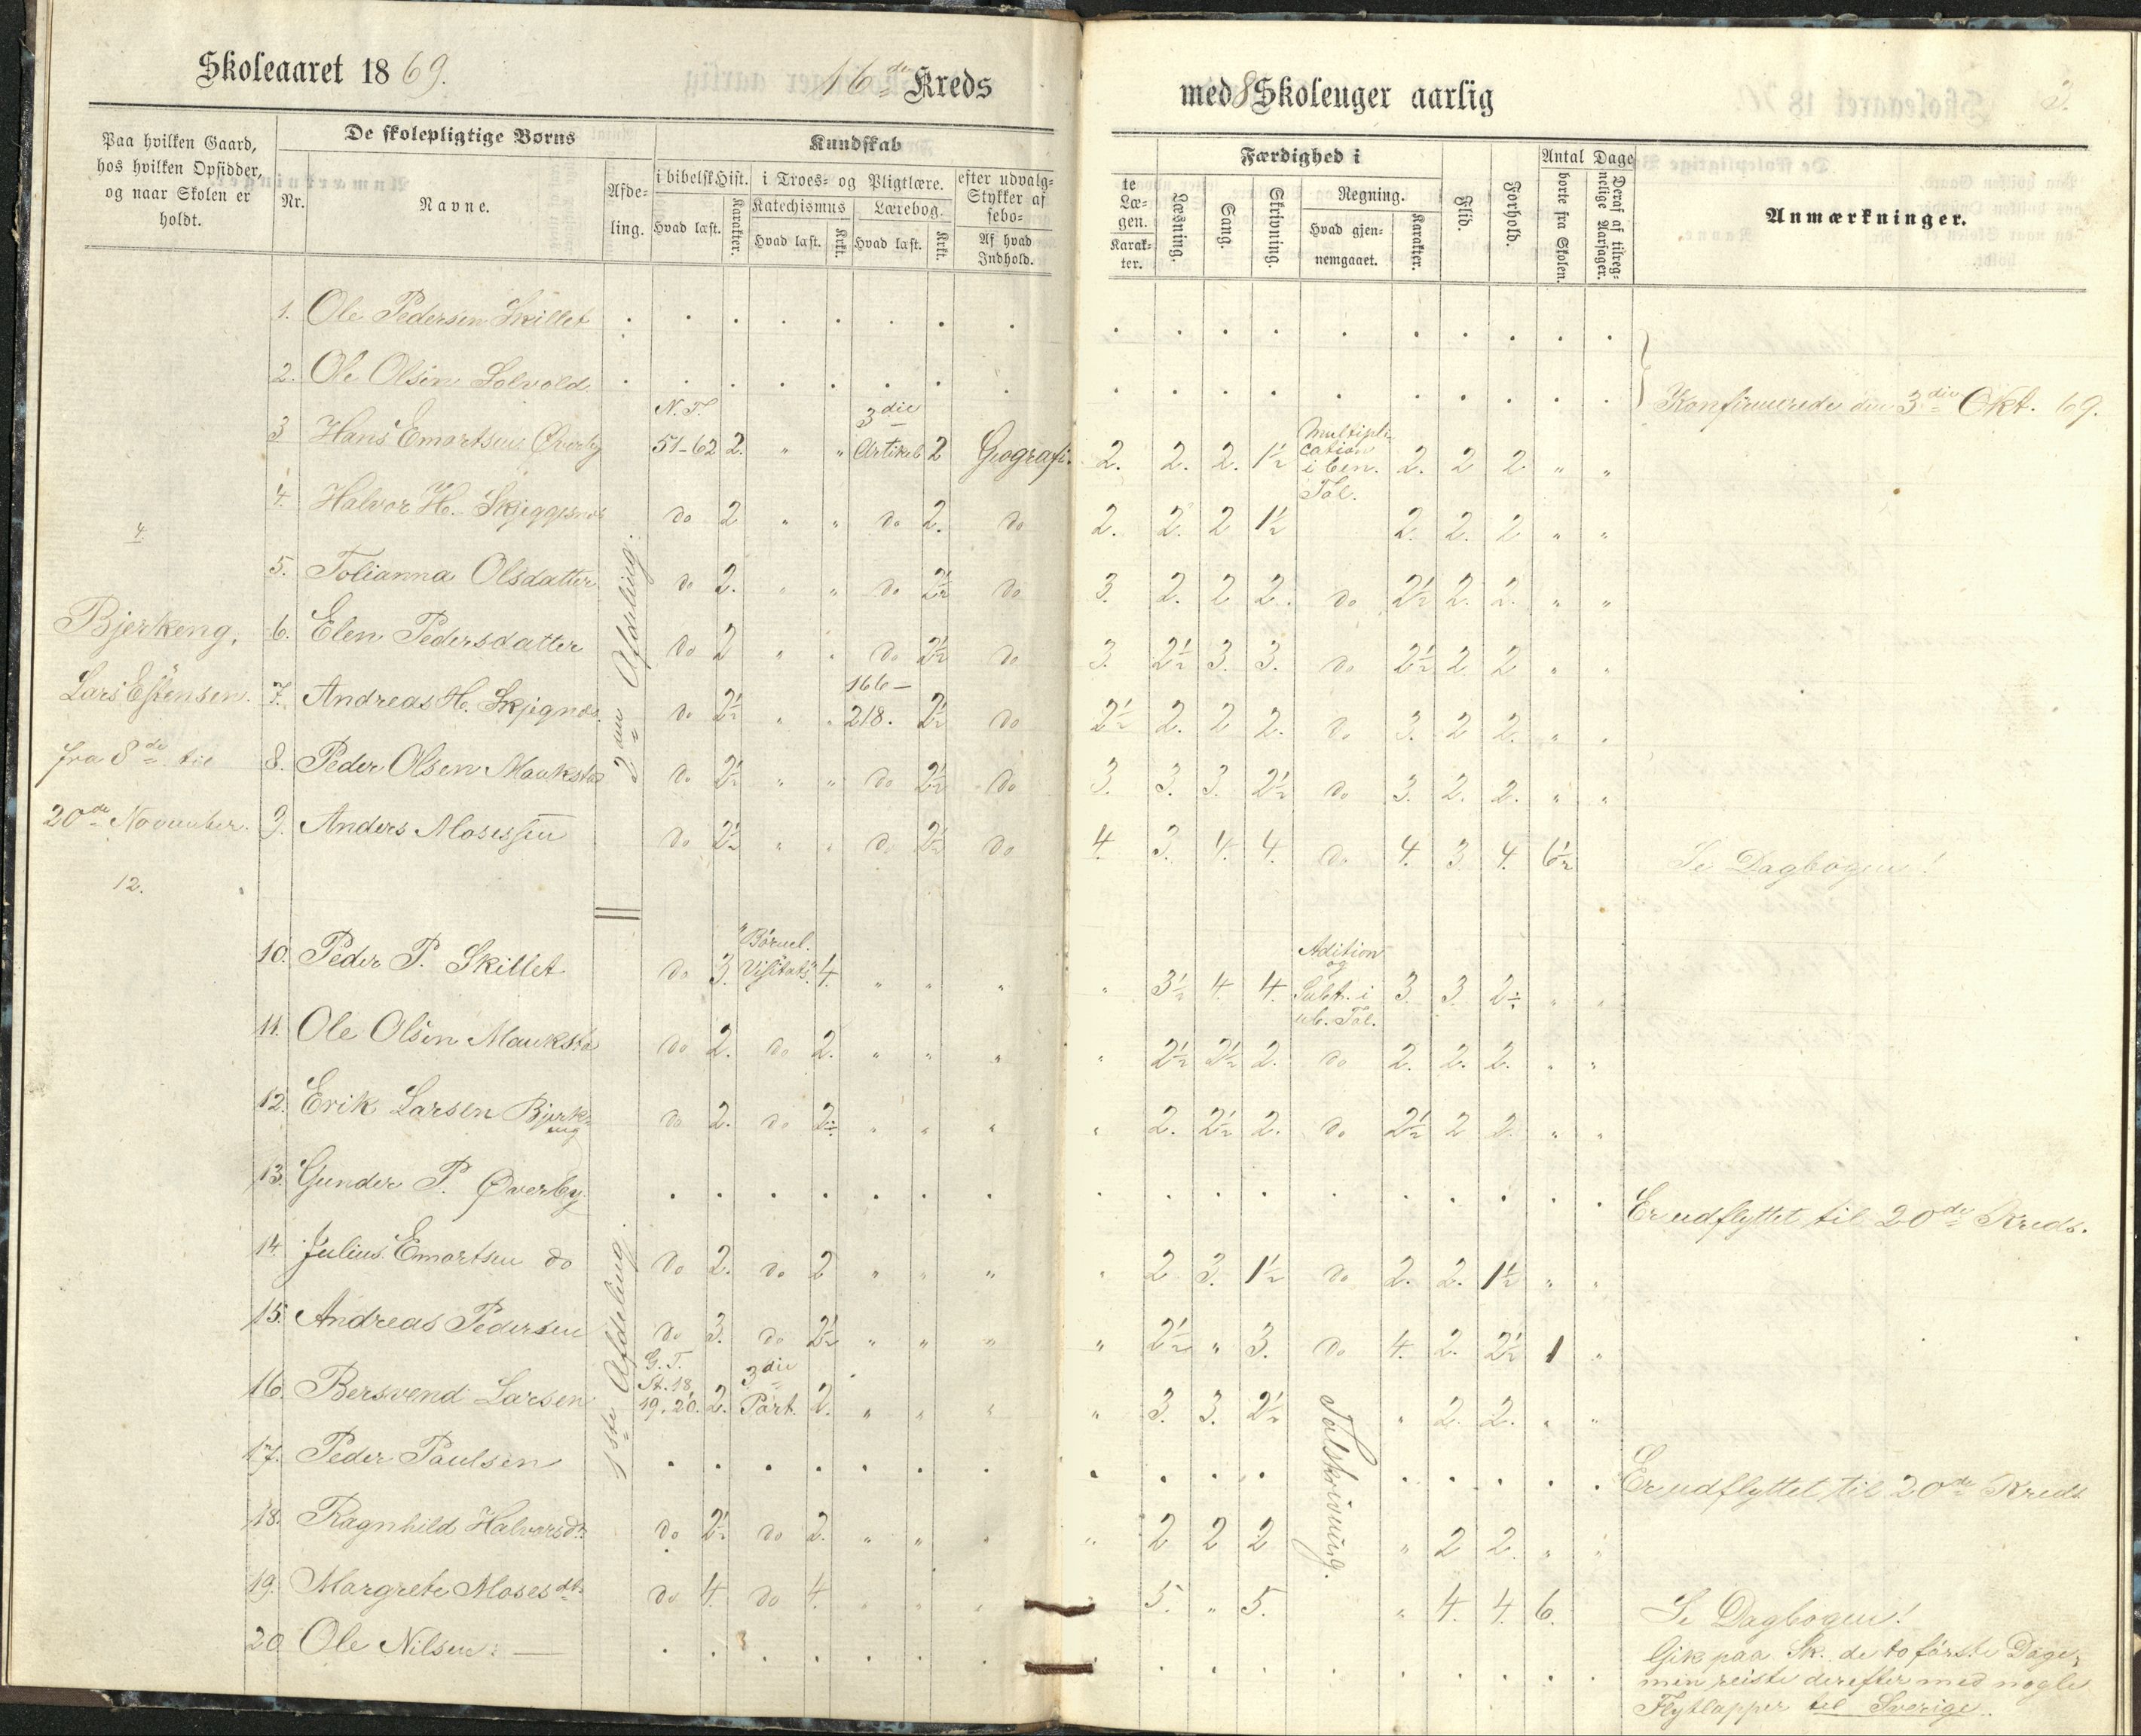 Skoleaaret 1869.
16de Kreds
med 8 Skoleuger aarlig
3.
Paa hvilken Gaard,
hos hvilken Opsidder,
og naar Skolen er
holdt.
De skolepligtige Børns
Nr.
Navne.
Afde-
ling.
Kundskab
i bibelsk Hist.
Hvad læst.
Karakter.
i Troes- og Pligtlære.
Katechismus
Hvad læst.
Krkt.
Lærebog.
Hvad læst.
Krkt.
efter udvalg-
Stykker af
sebo-
Af hvad
Indhold.
te
Læ-
gen.
Karak-
ter.
Færdighed i
Læsning.
Sang.
Skrivning.
Regning.
Hvad gjen-
nemgaaet.
Karakter.
Flid.
Forhold.
Antal Dage
borte fra Skolen.
Deraf af tilreg-
nelige Aarsager.
Anmærkninger.
4.
Bjerkeng,
Lars Estensen.
fra 8de til
20de November.
12.
2den Afdeling.
1ste Afdeling.
1. Ole Pedersen Skillet . . . . . . . . . . . . . . . . . .
2. Ole Olsen Solvold . . . . . . . . . . . . . . . . . .
} Konfirmerede den 3die Okt. 69.
3 Hans Emortsen Øverby N. T. 51-62 2. " " 3die Artikel 2 Geografi. 2. 2. 2. 1½ Multipli-
cation
i ben.
Tal. 2. 2 2 " "
4. Halvor H. Skjeggesnes do 2 " " do 2. do 2. 2. 2 1½ 2. 2. 2 " "
5. Tolianna Olsdatter do 2. " " do 2½ do 3. 2. 2 2. do 2½ 2. 2. " "
6. Elen Pedersdatter do 2 " " do 2½ do 3. 2½ 3. 3. do 2½ 2 2 " "
7. Andreas H. Skjegnes. do 2½ " " 166-
218. 2½ do 2½ 2. 2 2. do 3. 2 2. " "
8. Peder Olsen Mauksta do 2½ " " do 2½ do 3. 3. 3. 2½ do 3. 2. 2. " "
9. Anders Mosessen do 2½ " " do 2½ do 4. 3. 4. 4. do 4. 3 4. 6½ Se Dagbogen!
10. Peder P. Skillet do 3. "Børnel.
Visitats". 4. " " " " 3½ 4. 4. Adition
og
Subt. i
ub. Tal. 3. 3. 2÷ " "
11. Ole Olsen Mauksta do 2. do 2. " " " " 2½ 2½ 2. do 2. 2. 2. " "
12. Erik Larsen Bjerk-
eng do 2. do 2÷ " " " " 2. 2½ 2. do 2½ 2 2. " "
13. Gunder P. Øverby. . . . . . . . . . . . . . . . . . Er udflyttet til 20de Kreds.
14. Julius Emortsen do do 2. do 2 " " " " 2 3. 1½ do 2. 2. 1½ " "
15. Andreas Pedersen do 3. do 2½ " " " " 2½ " 3. do 4. 2. 2½ 1 "
16. Bersvend Larsen G. T.
St. 18,
19, 20. 2. 3die
Part. 2. " " " " 3. 3. 2½ Talskrivning. " 2. 2. " "
17. Peder Paulsen . . . . . . . . . . . . . . . . . Er udflyttet til 20de Kreds
18. Ragnhild Halvorsdr. do 2½ do 2. " " " " 2 2 2 " 2 2. " "
19. Margrete Mosesdtr. do 4. do 4. " " " " 5. " 5. " 4. 4. 6. Se Dagbogen!
20. Ole Nilsen: — . . . . . . . . . . . . . . . . . Gik paa Sk. de to første Dage,
men reiste derefter med nogle
Flytlapper til Sverige.